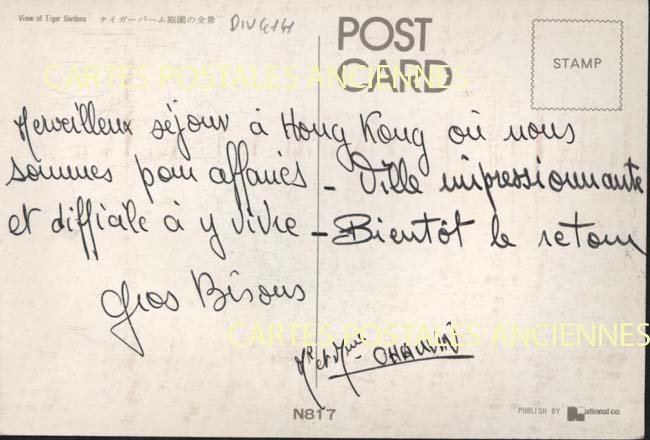 View of Tiger Gardens タイガーバーム庭園の全景
DIV 4141
POST
CARD
STAMP
CARTES POSTALES ANCIENNES
Merveilleux séjour à Hong Kong où nous
sommes pour affaires - Ville impressionnante
et difficile à y vivre - Bientôt le retour
Gros Bisous
CARTES POSTALES ANCIENNES
Mr et Mme CHAUVIN
N817
PUBLISH BY National co.